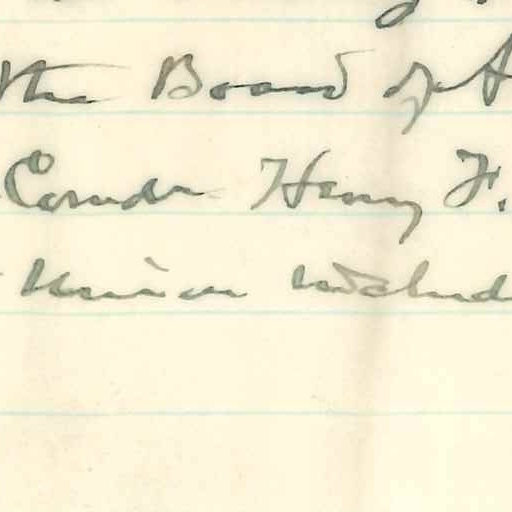 the Board of
Comdr Henry F.
Union